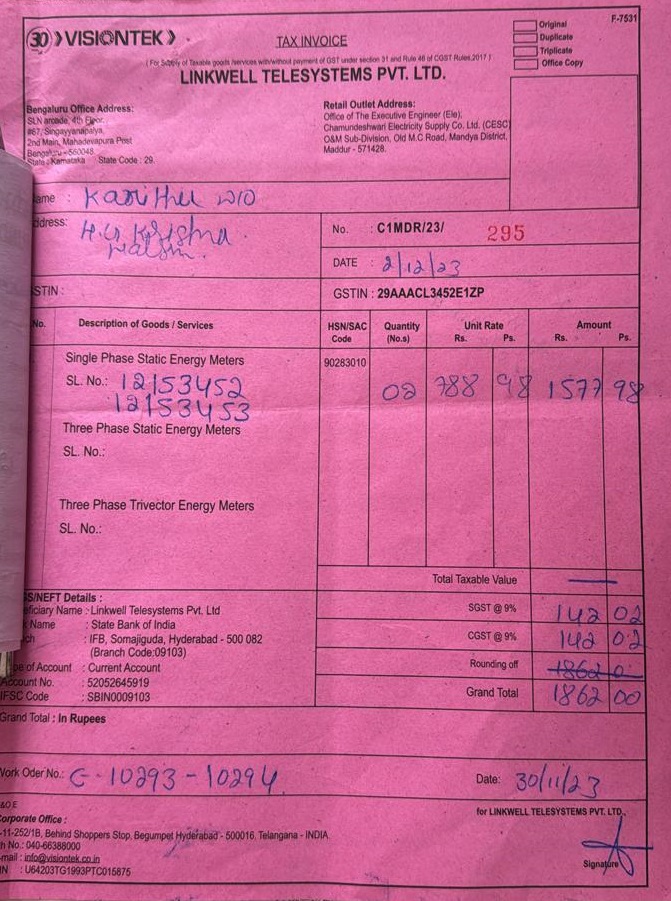 30 VISIONTEK
TAX INVOICE
Original
Duplicate
Triplicate
Office Copy
F-7531
(For Supply of Taxable goods /services with/without payment of GST under section 31 and Rule 46 of CGST Rules,2017)
LINKWELL TELESYSTEMS PVT. LTD.
Bengaluru Office Address:
SLN arcade, 4th Floor,
#67, Singayyanapalya,
2nd Main, Mahadevapura Post
Bengaluru - 560048.
State : Karnataka State Code : 29.
Retail Outlet Address:
Office of The Executive Engineer (Ele),
Chamundeshwari Electricity Supply Co. Ltd. (CESC)
O&M Sub-Division, Old M.C Road, Mandya District,
Maddur - 571428.
ame :
ddress:
No. : C1MDR/23/ 295
DATE : 2/12/23
STIN :
GSTIN : 29AAACL3452E1ZP
No. Description of Goods / Services HSN/SAC Code Quantity (No.s) Unit Rate Rs. Ps. Amount Rs. Ps.
Single Phase Static Energy Meters 90283010
SL. No.: 12153452 02 788 98 1577 98
12153453
Three Phase Static Energy Meters
SL. No.:
Three Phase Trivector Energy Meters
SL. No.:
Total Taxable Value —
S/NEFT Details :
eficiary Name : Linkwell Telesystems Pvt. Ltd
k Name : State Bank of India
ch : IFB, Somajiguda, Hyderabad - 500 082
(Branch Code:09103)
pe of Account : Current Account
Account No. : 52052645919
IFSC Code : SBIN0009103
SGST @ 9% 142 02
CGST @ 9% 142 02
Rounding off
Grand Total 1862 00
Grand Total : In Rupees
Work Oder No.: C-10293-10294
Date: 30/11/23
&O.E
orporate Office :
-11-252/1B, Behind Shoppers Stop, Begumpet Hyderabad - 500016, Telangana - INDIA.
h No.: 040-66388000
mail : info@visiontek.co.in
IN : U64203TG1993PTC015875
for LINKWELL TELESYSTEMS PVT. LTD.,
Signature